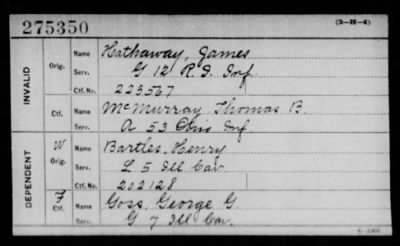 275350 (3-H-4)
INVALID
Orig.
Name Hathaway, James
Serv. G 12 R.I. Inf.
Ctf. No. 223567
Ctf.
Name McMurray, Thomas B.
Serv. A 53 Ohio Inf.
DEPENDENT
W
Orig.
Name Bartles, Henry
Serv. L 5 Ill Cav
Ctf. No. 202128
F
Ctf.
Name Goss, George G.
Serv. G 7 Ill Cav.